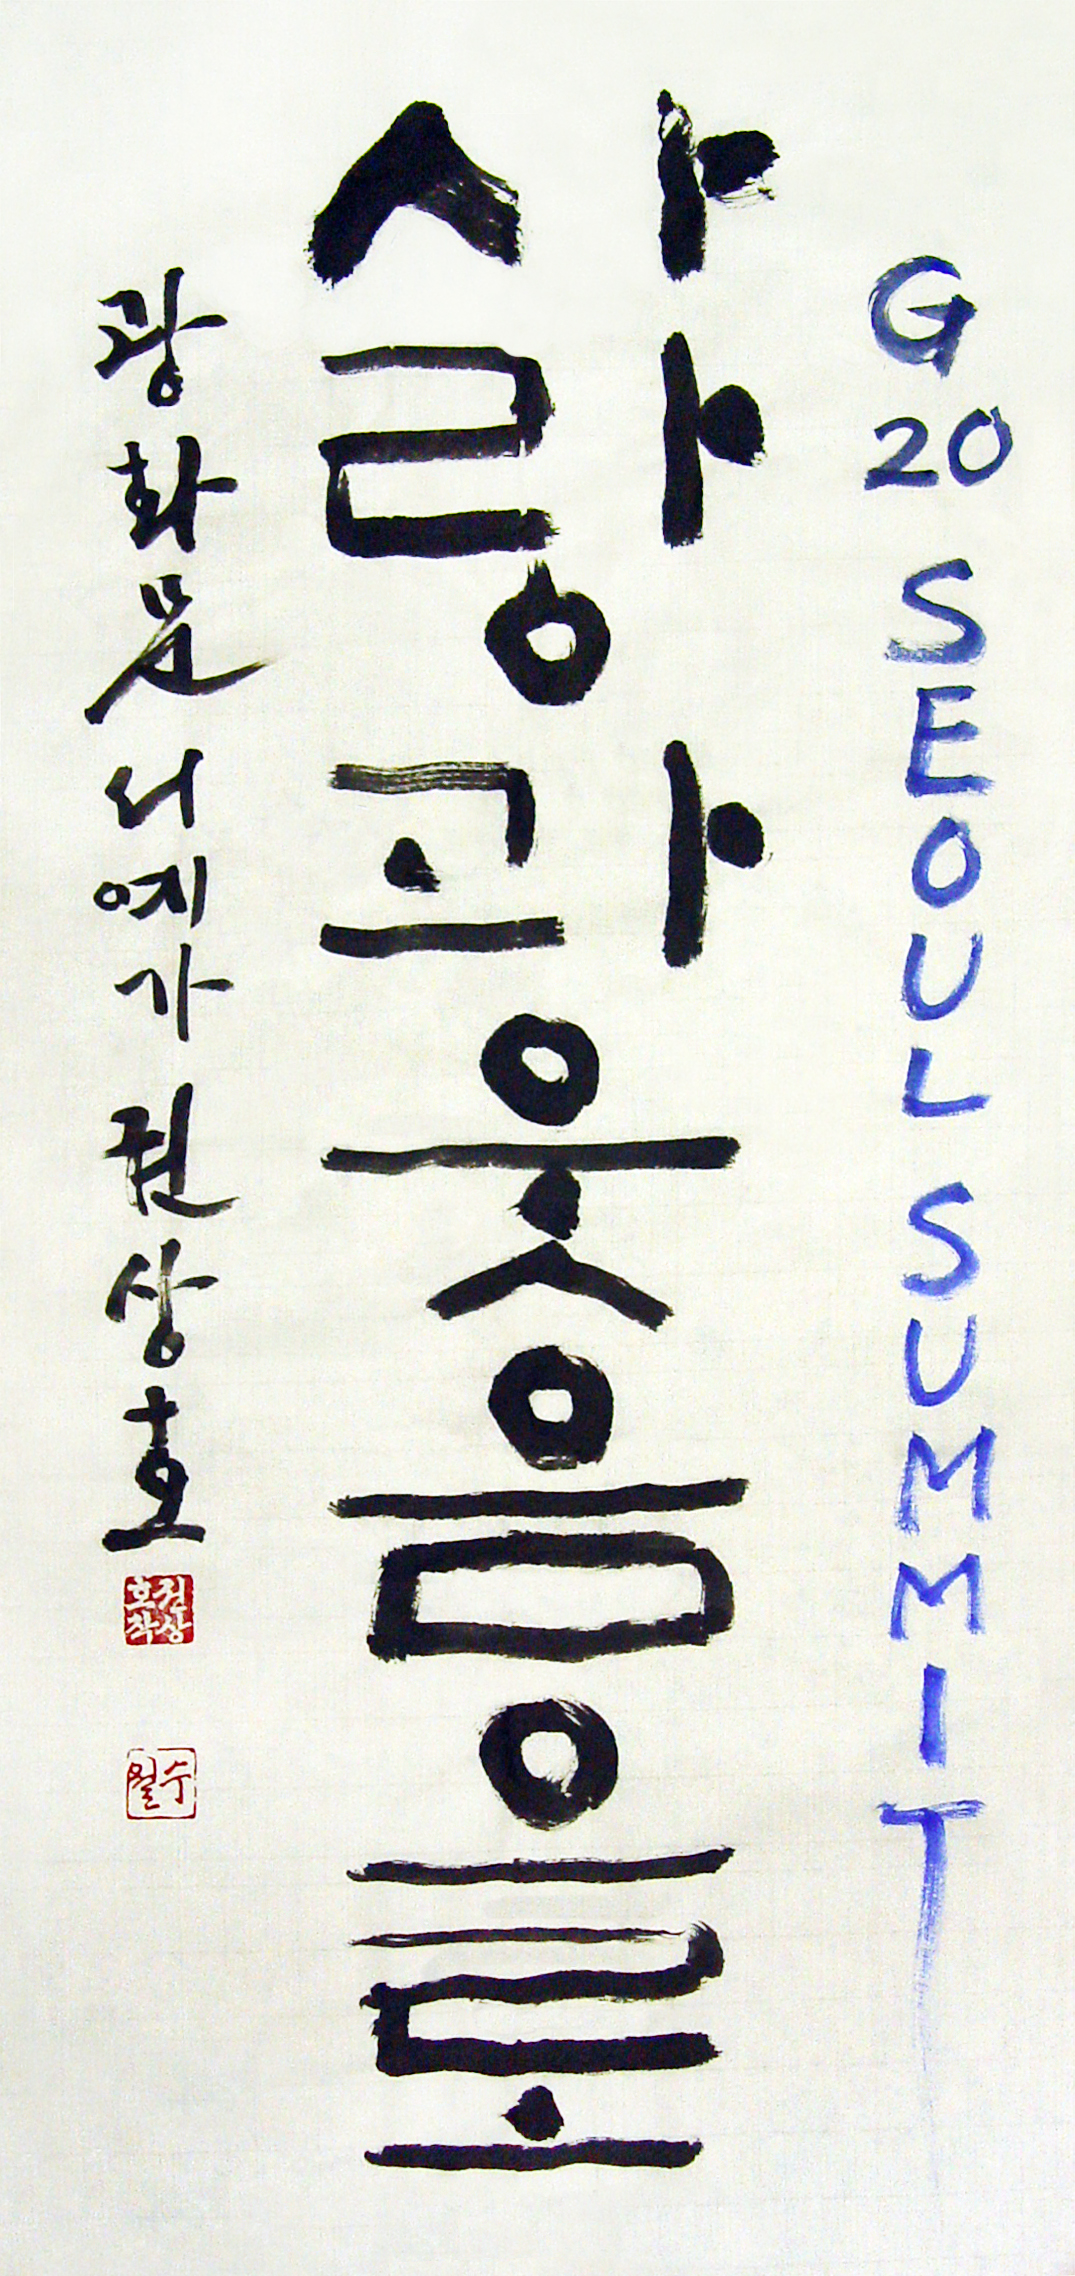 G20 SEOUL SUMMIT
사랑과 웃음으로
광화문 서예가 권상호
권상호작
수월